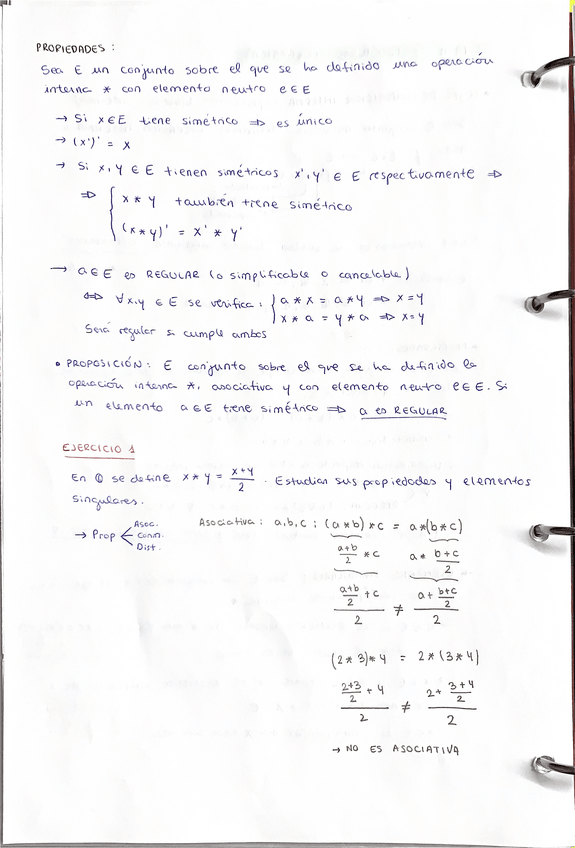 PROPIEDADES :
Sea E un conjunto sobre el que se ha definido una operación
interna * con elemento neutro e∈E
→ Si x∈E tiene simétrico ⇒ es único
→ (x')' = x
→ Si x,y ∈ E tienen simétricos x',y' ∈ E respectivamente ⇒
⇒ { x * y también tiene simétrico
(x * y)' = x' * y'
→ a∈E es REGULAR (o simplificable o cancelable)
⇔ ∀x,y ∈ E se verifica : { a * x = a * y ⇒ x=y
x * a = y * a ⇒ x=y
Será regular si cumple ambos
• PROPOSICIÓN : E conjunto sobre el que se ha definido la
operación interna *, asociativa y con elemento neutro e∈E. Si
un elemento a∈E tiene simétrico ⇒ a es REGULAR
EJERCICIO 1
En ℚ se define x * y = (x+y)/2 . Estudiar sus propiedades y elementos
singulares.
→ Prop < Asoc.
Conm.
Dist.
Asociativa : a,b,c : (a * b) * c = a * (b * c)
(a+b)/2 * c a * (b+c)/2
((a+b)/2 + c)/2 ≠ (a + (b+c)/2)/2
(2 * 3) * 4 = 2 * (3 * 4)
((2+3)/2 + 4)/2 ≠ (2 + (3+4)/2)/2
→ NO ES ASOCIATIVA